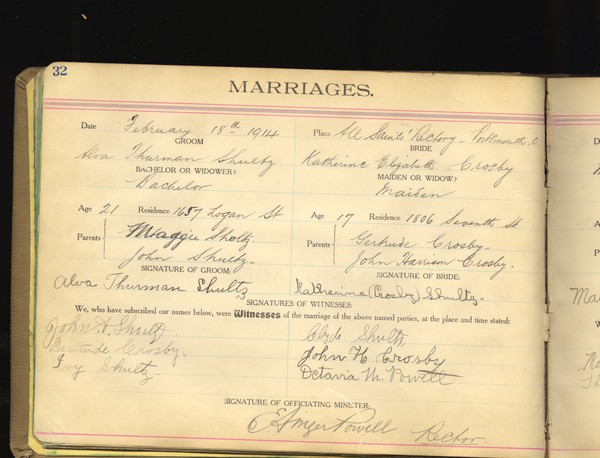 32
MARRIAGES.
Date February 18th 1914 Place All Saints' Rectory - Portsmouth, O
GROOM BRIDE
Alva Thurman Shultz Katherine Elizabeth Crosby
BACHELOR OR WIDOWER) MAIDEN OR WIDOW)
Bachelor Maiden
Age 21 Residence 1657 Logan St Age 17 Residence 1806 Seventh St.
Parents Maggie Sholtz Parents Gertrude Crosby.
John Shultz. John Harrison Crosby.
SIGNATURE OF GROOM: SIGNATURE OF BRIDE:
Alva Thurman Shultz Katherine (Crosby) Shultz.
SIGNATURES OF WITNESSES:
We, who have subscribed our names below, were Witnesses of the marriage of the above named parties, at the place and time stated:
John Shultz Clyde Shultz
Gertrude Crosby. John H Crosby
Ivy Shultz Octavia M. Powell
SIGNATURE OF OFFICIATING MINISTER:
E. Ainger Powell Rector.